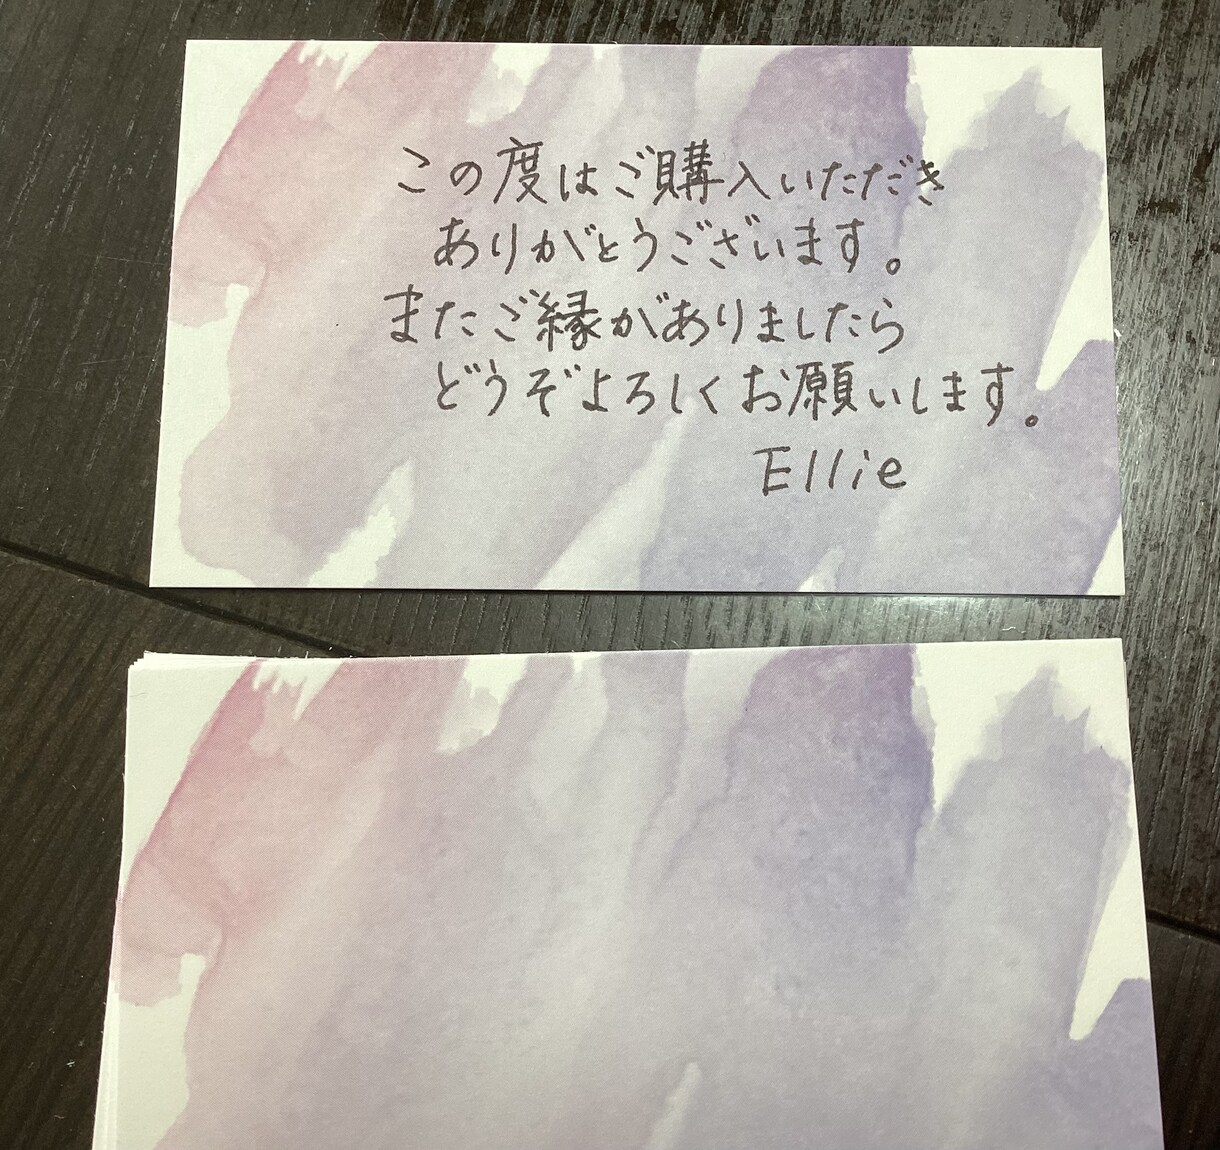 この度はご購入いただき
ありがとうございます。
またご縁がありましたら
どうぞよろしくお願いします。
Ellie